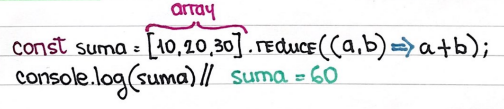 array
const suma = [10,20,30].reduce((a,b) => a+b);
console.log(suma) // suma = 60